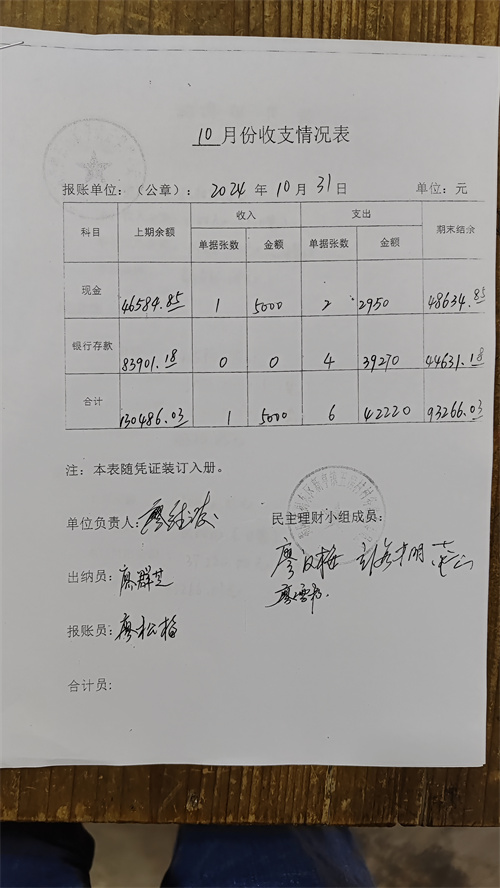 10月份收支情况表
报账单位：（公章）： 2024 年 10 月 31 日 单位：元
科目 上期余额 收入 支出 期末结余
单据张数 金额 单据张数 金额
现金 46584.85 1 5000 2 2950 48634.85
银行存款 83901.18 0 0 4 39270 44631.18
合计 130486.03 1 5000 6 42220 93266.03
注：本表随凭证装订入册。
单位负责人： 民主理财小组成员：
出纳员：廖群芝
报账员：廖松梅
合计员：